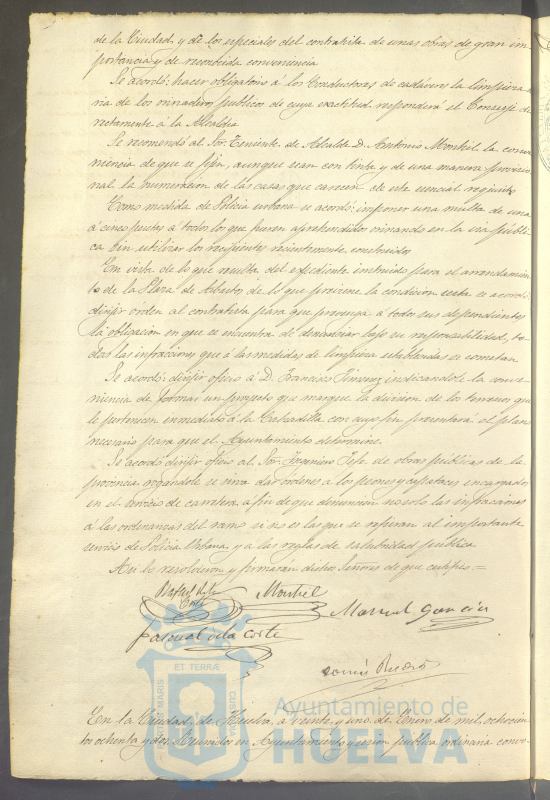 de la Ciudad, y de los especiales del contratista de unas obras de gran im-
portancia y de reconocida conveniencia
Se acordó: hacer obligatorio á los Conductores de cadáveres la limpieza
ria de los orinaderos publicos de cuya exactitud responderá el Conserje di-
rectamente á la Alcaldia
Se recomendó al Sor. Teniente de Alcalde D. Antonio Montiel la conve-
niencia de que se fijen, aunque sean con tinta y de una manera provisio-
nal la numeracion de las casas que carecen de este esencial requisito
Como medida de Policia urbana se acordó: imponer una multa de una
á cinco pesetas á todos los que fueren aprehendidos orinando en la via públi-
ca sin utilizar los recipientes recientemente construidos
En vista de lo que resulta del expediente instruido para el arrendamien-
to de la Plaza de Abastos de lo que previene la condicion sesta se acordó:
dirijir orden al contratista para que prevenga á todos sus dependientes
la obligacion en que se encuentra de denunciar bajo su responsabilidad, to-
das las infracciones que á las medidas de limpieza establecidas se cometan
Se acordó: dirijir oficio á D. Francisco Jimenez indicandole la conve-
niencia de formar un proyecto que marque la division de los terrenos que
le pertenecen inmediato á la con cuyo fin presentará el plano
necesario para que el Ayuntamiento determine.
Se acordó dirijir oficio al Sor. Ingeniero Jefe de obras públicas de la
provincia rogándole se sirva dar órdenes á los peones y capataces encargados
en el servicio de carretera á fin de que denuncien no solo las infracciones
á las ordenanzas del ramo si no es las que se refieran al importante
servicio de Policia Urbana, y á las reglas de salubridad pública
Asi lo resolvieron y firmaran dichos Señores de que certifico =
Rafael de la
Corte
Montiel
Manuel Garcia
Pascual de la Corte
ET TERRÆ
MARIS
CUSTODIA
Ayuntamiento de
HUELVA
En la Ciudad de Huelva, á veinte y uno de Enero de mil ochocien-
tos ochenta y dos: Reunidos en Ayuntamiento y sesion publica ordinaria convo-